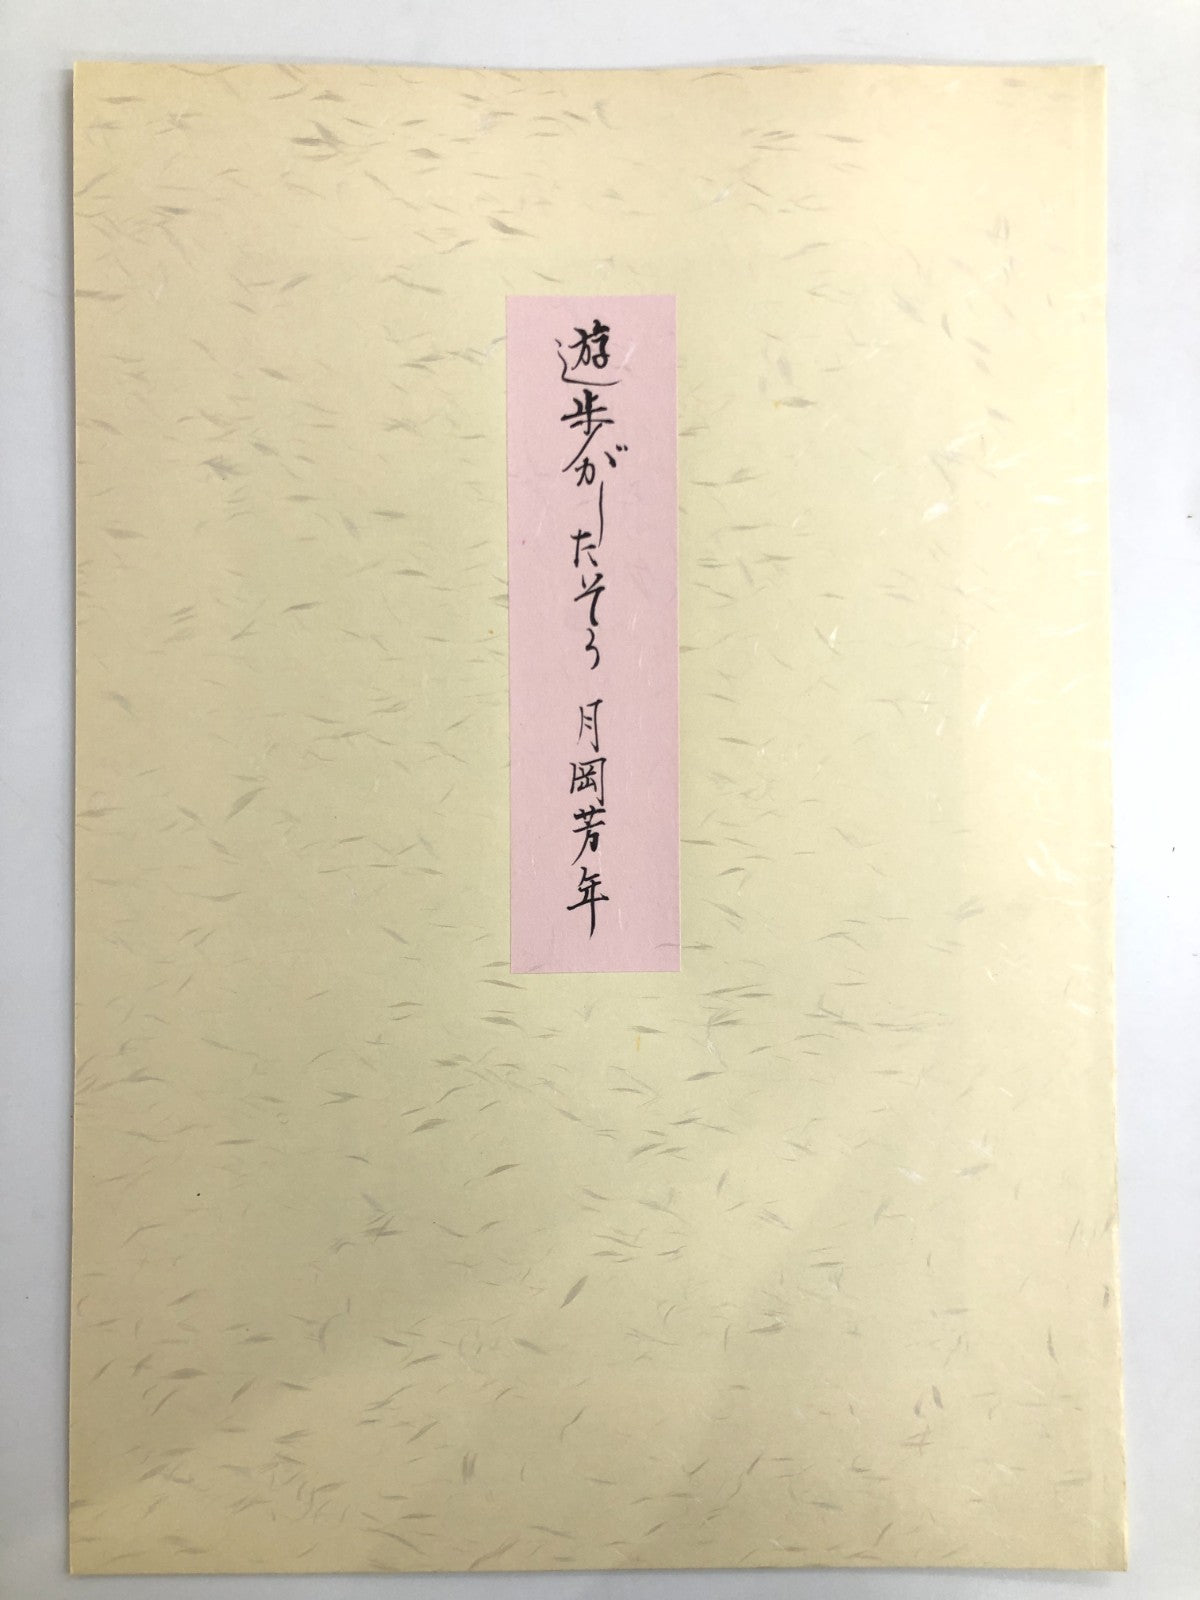 遊歩がしたそう 月岡芳年